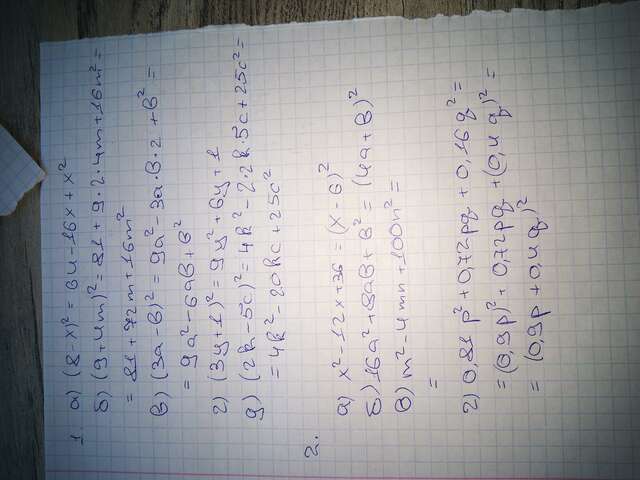 1. а) (8-x)² = 64-16x+x²
б) (9+4m)² = 81+9·2·4m+16m² =
= 81+72m+16m²
в) (3a-b)² = 9a²-3a·b·2+b² =
= 9a²-6ab+b²
г) (3y+1)² = 9y²+6y+1
д) (2k-5c)² = 4k²-2·2k·5c+25c² =
= 4k²-20kc+25c²
2.
а) x²-12x+36 = (x-6)²
б) 16a²+8ab+b² = (4a+b)²
в) m²-4mn+100n² =
=
г) 0,81p²+0,72pq+0,16q² =
= (0,9p)²+0,72pq+(0,4q)² =
= (0,9p+0,4q)²